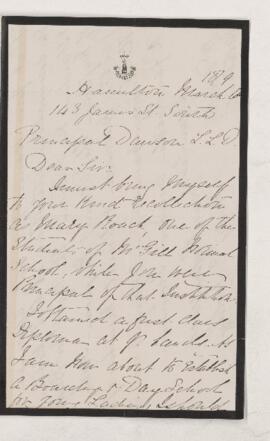 1879
Hamilton March
143 James St. South
Principal Dawson L.L.D.
Dear Sir.
I must bring myself
to your kind recollection
as Mary Roach, one of the
Students of McGill Normal
School, while you were
Principal of that Institution
I obtained a first class
Diploma at yr hands. As
I am now about to establish
a Boarding & Day School
for young Ladies I should